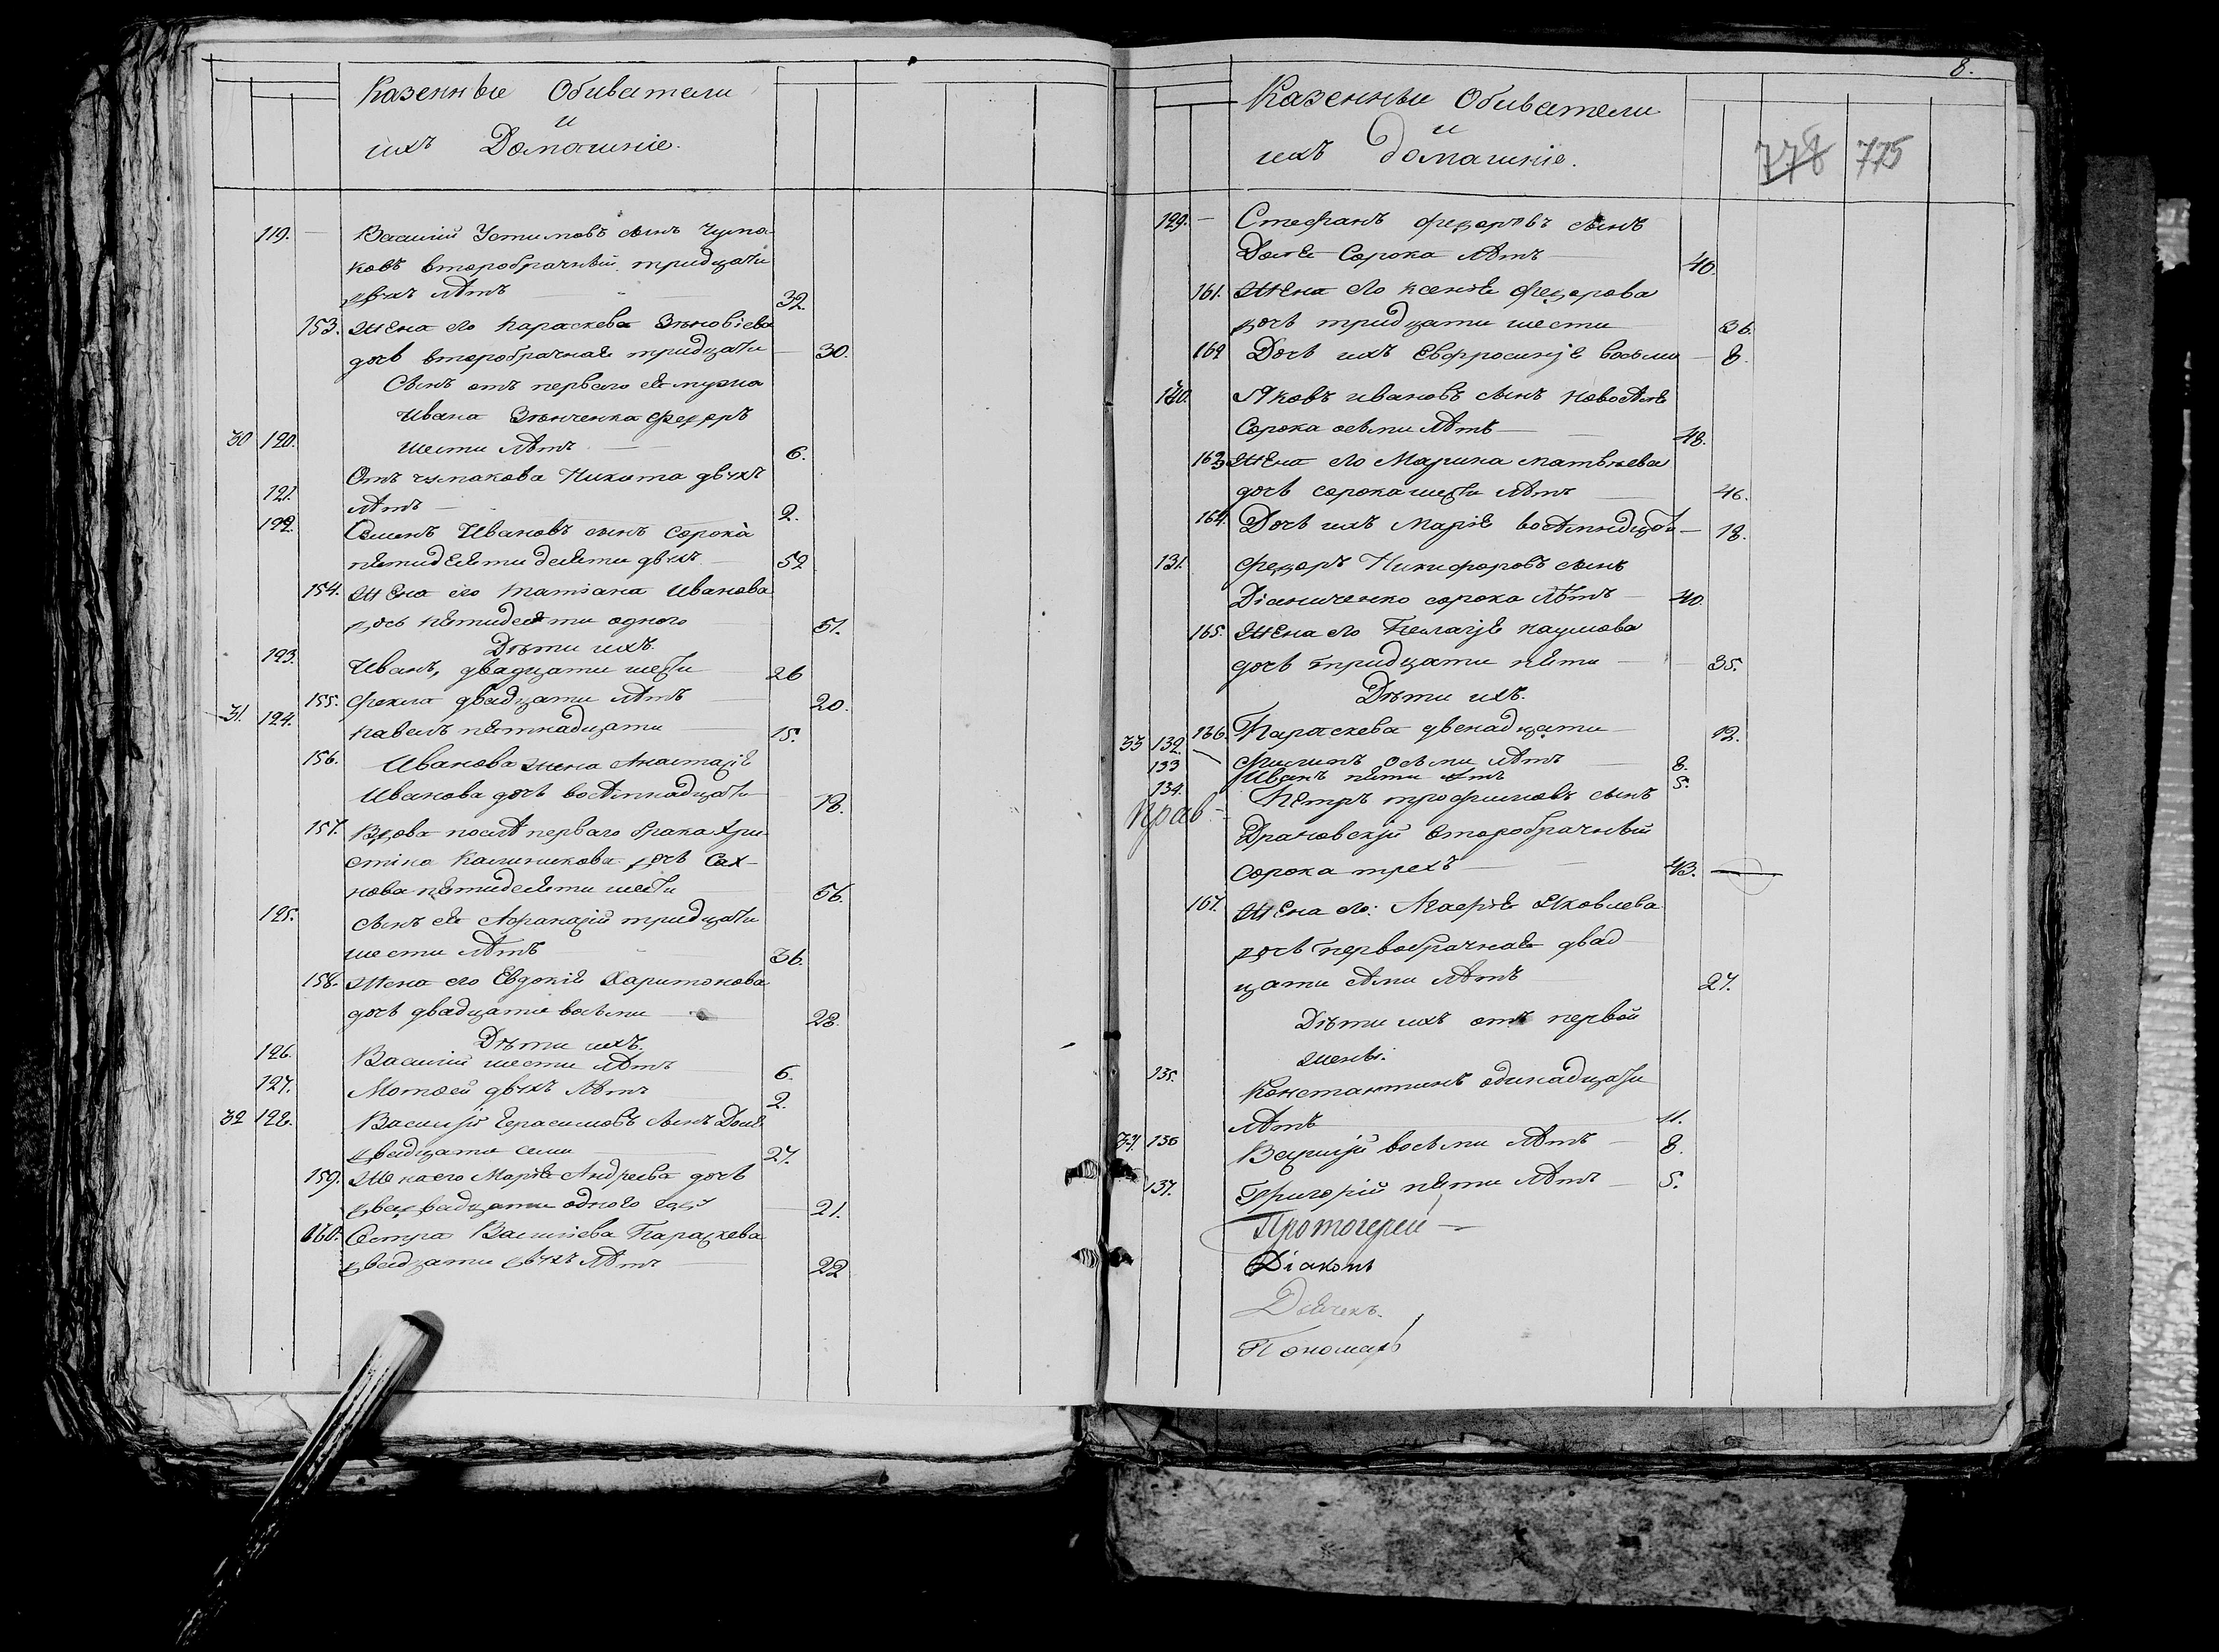 Казенные Обиватели
и
ихъ Домашніе.
119. — Василій Устимовъ сынъ Чума-
ковъ второбрачный тридцати
двухъ лѣтъ — 32.
153. Жена его Параскева Зѣновіева
дочь второбрачная тридцати — 30.
Сынъ отъ перваго ея мужа
Ивана Зѣнченка Федоръ
30 120. шести лѣтъ — 6.
Отъ чумакова Никита двухъ
121. лѣтъ — 2.
122. Семенъ Ивановъ сынъ Сорока
пятидесяти двухъ — 52
154. Жена его Татіана Иванова
дочь пятидесяти одного 51.
Дѣти ихъ.
123. Иванъ, двадцати шести 26
155. Фекла двадцати лѣтъ 20.
31. 124. Павелъ пятнадцати 15.
156. Иванова жена Анастасія
Иванова дочь восемнадцати 18.
157. Вдова послѣ перваго брака Хри-
стіна Калиникова дочь Сах-
нова пятидесяти шести 56.
125. сынъ ея Афанасій тридцати
шести лѣтъ 36.
158. Жена его Евдокія Харитонова
дочь двадцати восьми — 28.
Дѣти ихъ.
126. Василій шести лѣтъ 6.
127. Мотвей двухъ лѣтъ 2.
32 128. Василій Герасимовъ сынъ Доля
двадцати семи — 27.
159. Жена его Марія Андреева дочь
двадцати одного 21.
160. Сестра Василіева Параскева
двадцати двухъ лѣтъ — 22
8.
Казенные Обиватели
и
ихъ домашніе.
778 775
129. — Стефанъ Федоровъ сынъ
Доля Сорока лѣтъ — 40.
161. Жена его Ксенія Федорова
дочь тридцати шести 36.
162 Дочь ихъ Евфросинія восьми — 8.
130. Яковъ Ивановъ сынъ
Сорока осьми лѣтъ — 48.
163 Жена его Марина Матвѣева
дочь сорока шести лѣтъ 46.
164. Дочь ихъ Марія — 18.
131. Федоръ Никифоровъ сынъ
сорока лѣтъ — 40.
165. Жена его Пелагія Наумова
дочь тридцати пяти — 35.
Дѣти ихъ.
166. Параскева двенадцати — 12.
33 132. Филипъ осьми лѣтъ — 8.
133 Иванъ пяти лѣтъ 5.
134. Петръ трофимовъ сынъ
прав. —
Драновскій второбрачный
сорока трехъ — 43. —
167. Жена его: Марфа Яковлева
дочь первобрачная двад
цати семи лѣтъ 27.
Дѣти ихъ отъ первой
жены.
135. Константинъ одинадцати
лѣтъ 11.
34 136 Василій восьми лѣтъ — 8.
137. Григорій пяти лѣтъ — 5.
Протоіерей —
Діаконъ
Дьячекъ.
Пономарь